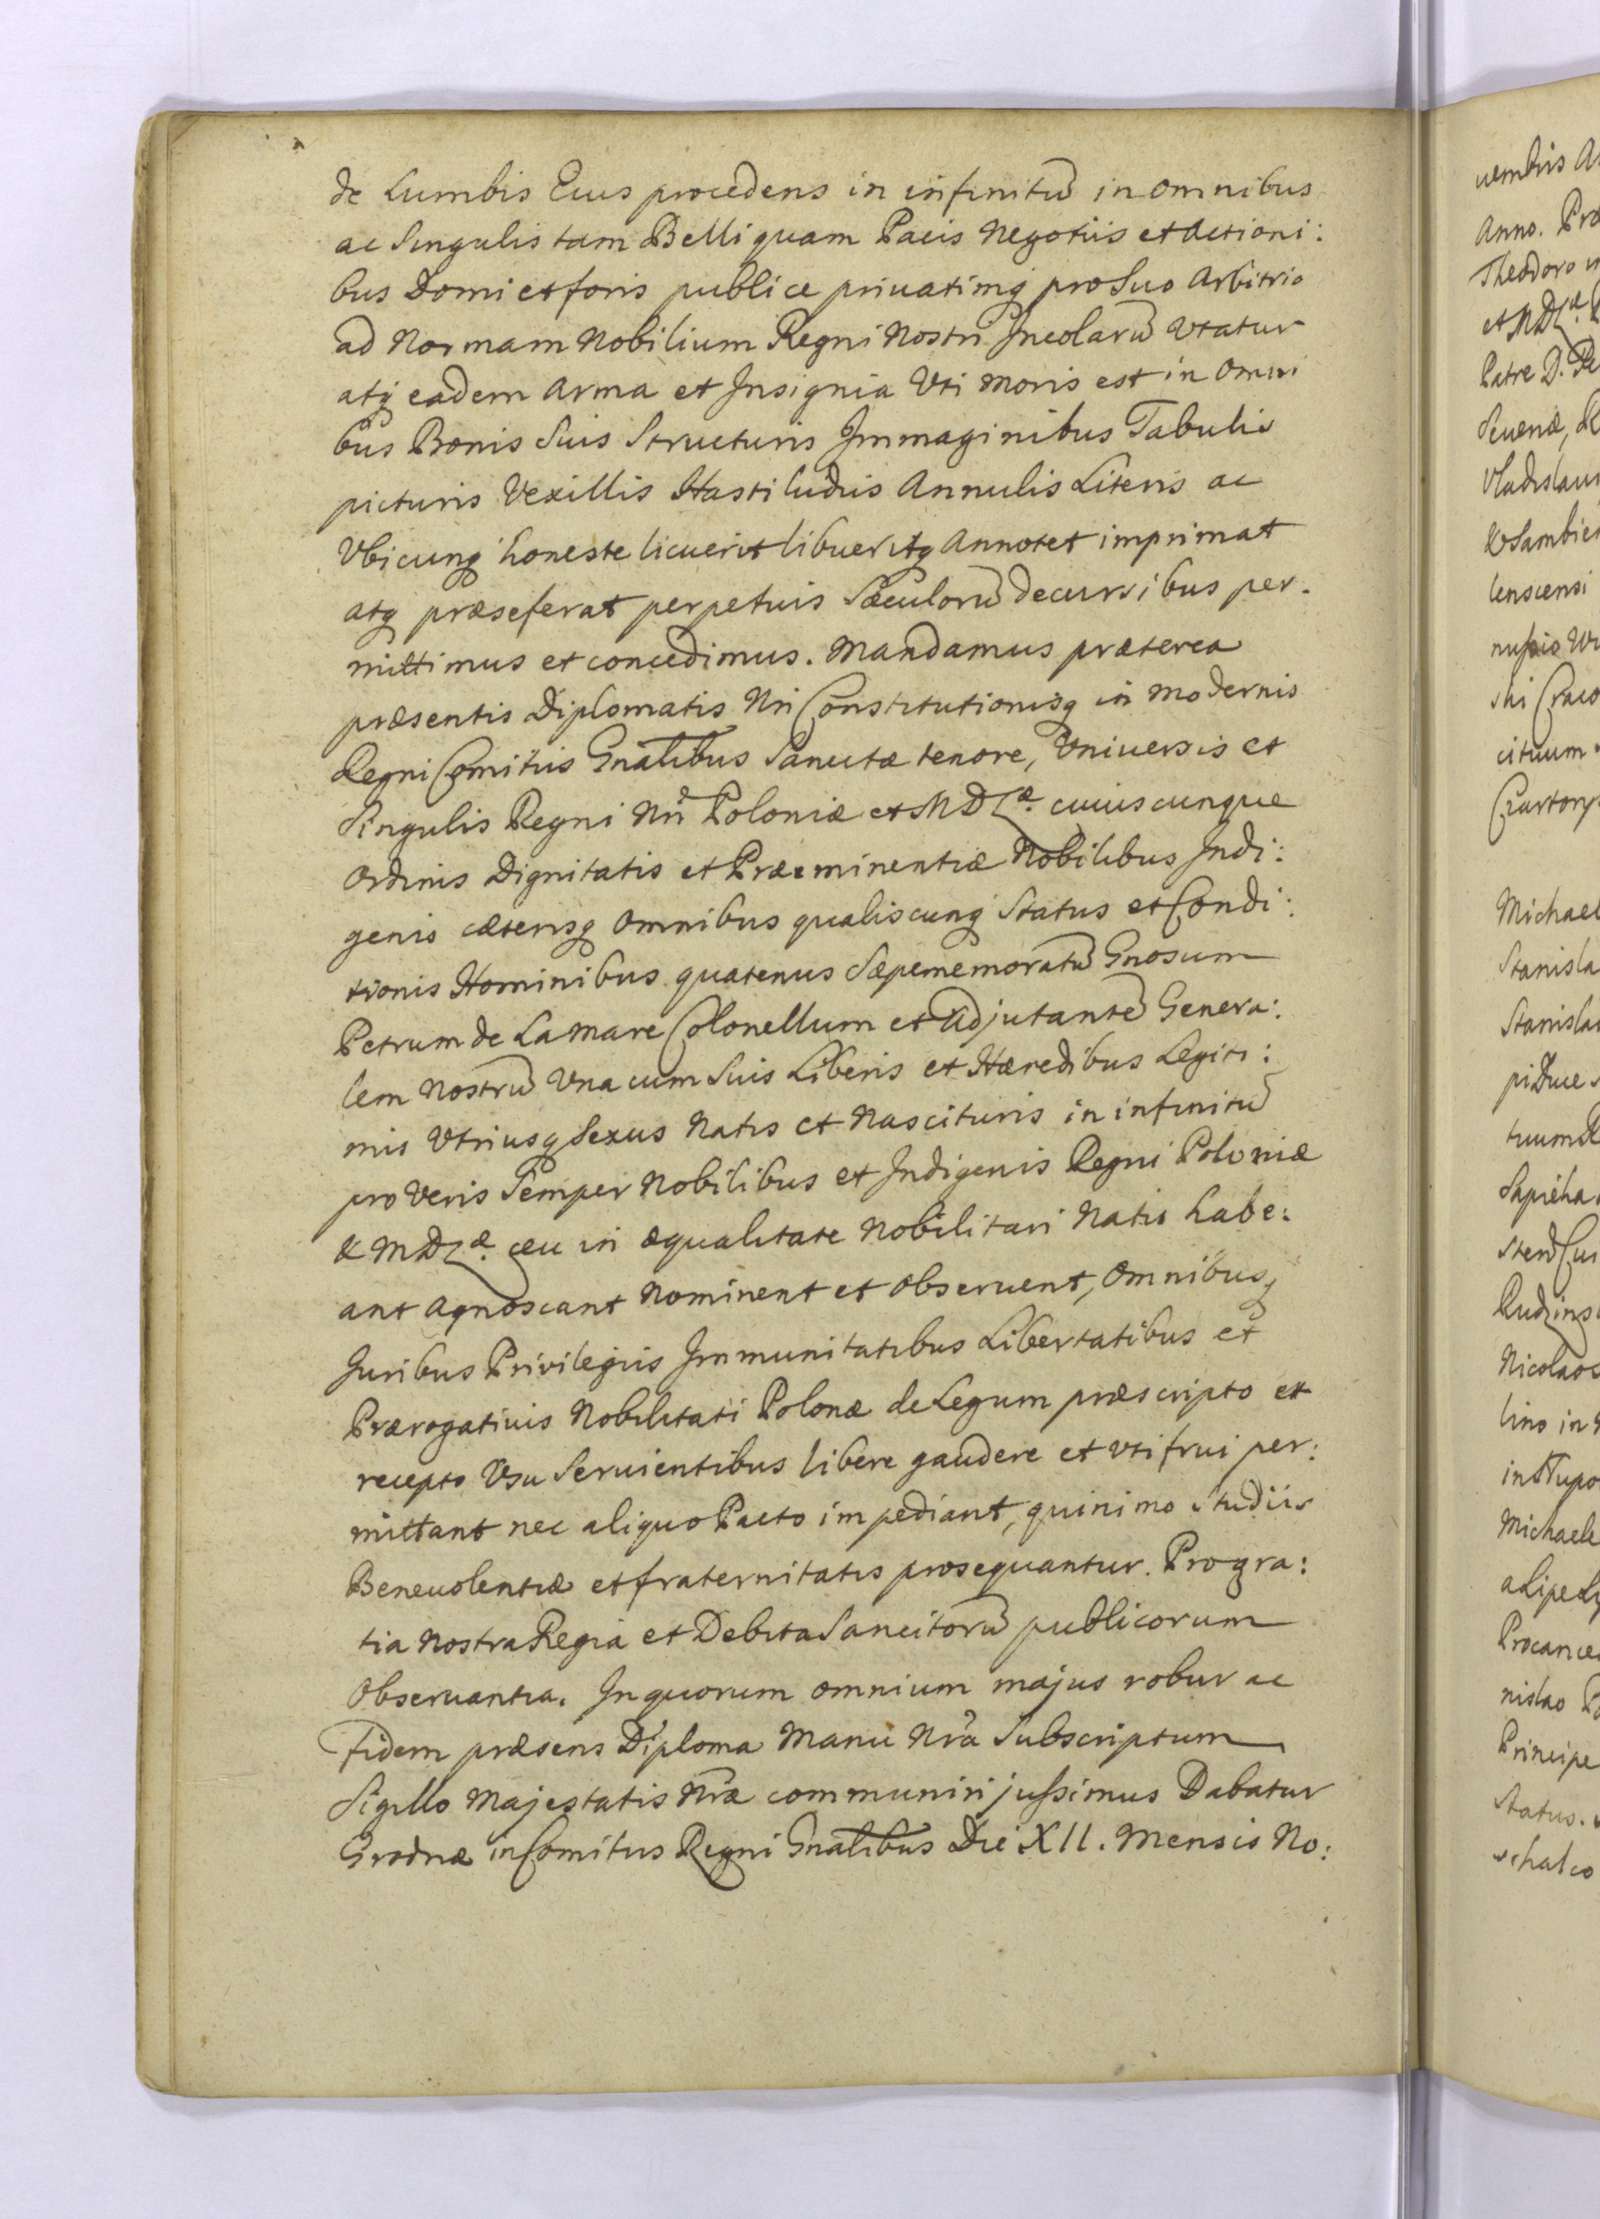 de Lumbis Eius procedens in infinitū in omnibus
ac Singulis tam Belli quam Pacis Negotiis et Actioni:
bus Domi et foris publice priuatimq̨ pro Suo Arbitrio
ad Normam Nobilium Regni Nostri Incolarū Vtatur
atq̨ eadem Arma et Insignia Vti moris est in Omni
bus Bonis Suis Structuris Immaginibus Tabulis
picturis Vexillis Hastiludiis Annulis Literis ac
Vbicunq̨ honeste licuerit libueritq̨ Annotet imprimat
atq̨ præseferat perpetuis Sæculorū decursibus per.
mittimus et concedimus. Mandamus præterea
præsentis Diplomatis Nri Constitutionisq̨ in modernis
Regni Comitiis Gnālibus Sancitæ tenore, Vniversis et
Singulis Regni Nri Poloniæ et M D Læ. cuiuscunque
Ordinis Dignitatis et Præeminentiæ Nobilibus Indi:
genis cæterisq̨ Omnibus qualiscunq̨ Status et Condi:
tionis Hominibus quatenus Sæpememoratū Gnosum
Petrum de La Mare Colonellum et Adjutantē Genera:
lem Nostrū Vna cum Suis Liberis et Hæredibus Legiti:
mis Vtriusq̨ Sexus Natis et Nascituris in infinitū
pro Veris Semper Nobilibus et Indigenis Regni Poloniæ
& M D Læ. ceu in æqualitate Nobilitari Natis habe:
ant Agnoscant Nominent et Observent, Omnibusq̨
Juribus Privilegiis Immunitatibus Libertatibus et
Prærogativis Nobilitati Polonæ de Legum præscripto et
recepto Vsu Seruientibus libere gaudere et vti frui per:
mittant nec aliquo Pacto impediant, quinimo Studiis
Beneuolentiæ et fraternitatis prosequantur. Pro gra:
tia Nostra Regia et Debita Sancitorū publicorum
Obseruantia. In quorum omnium majus robur ac
Fidem præsens Diploma Manu Nra Subscriptum
Sigillo Majestatis Nræ communiri jussimus Dabatur
Grodnæ in Comitiis Regni Gnālibus Die XII. Mensis No:
uembris
Anno.
Theodoro
Patre D.
Michael
Nicolao
Michaele
Principe
Status.